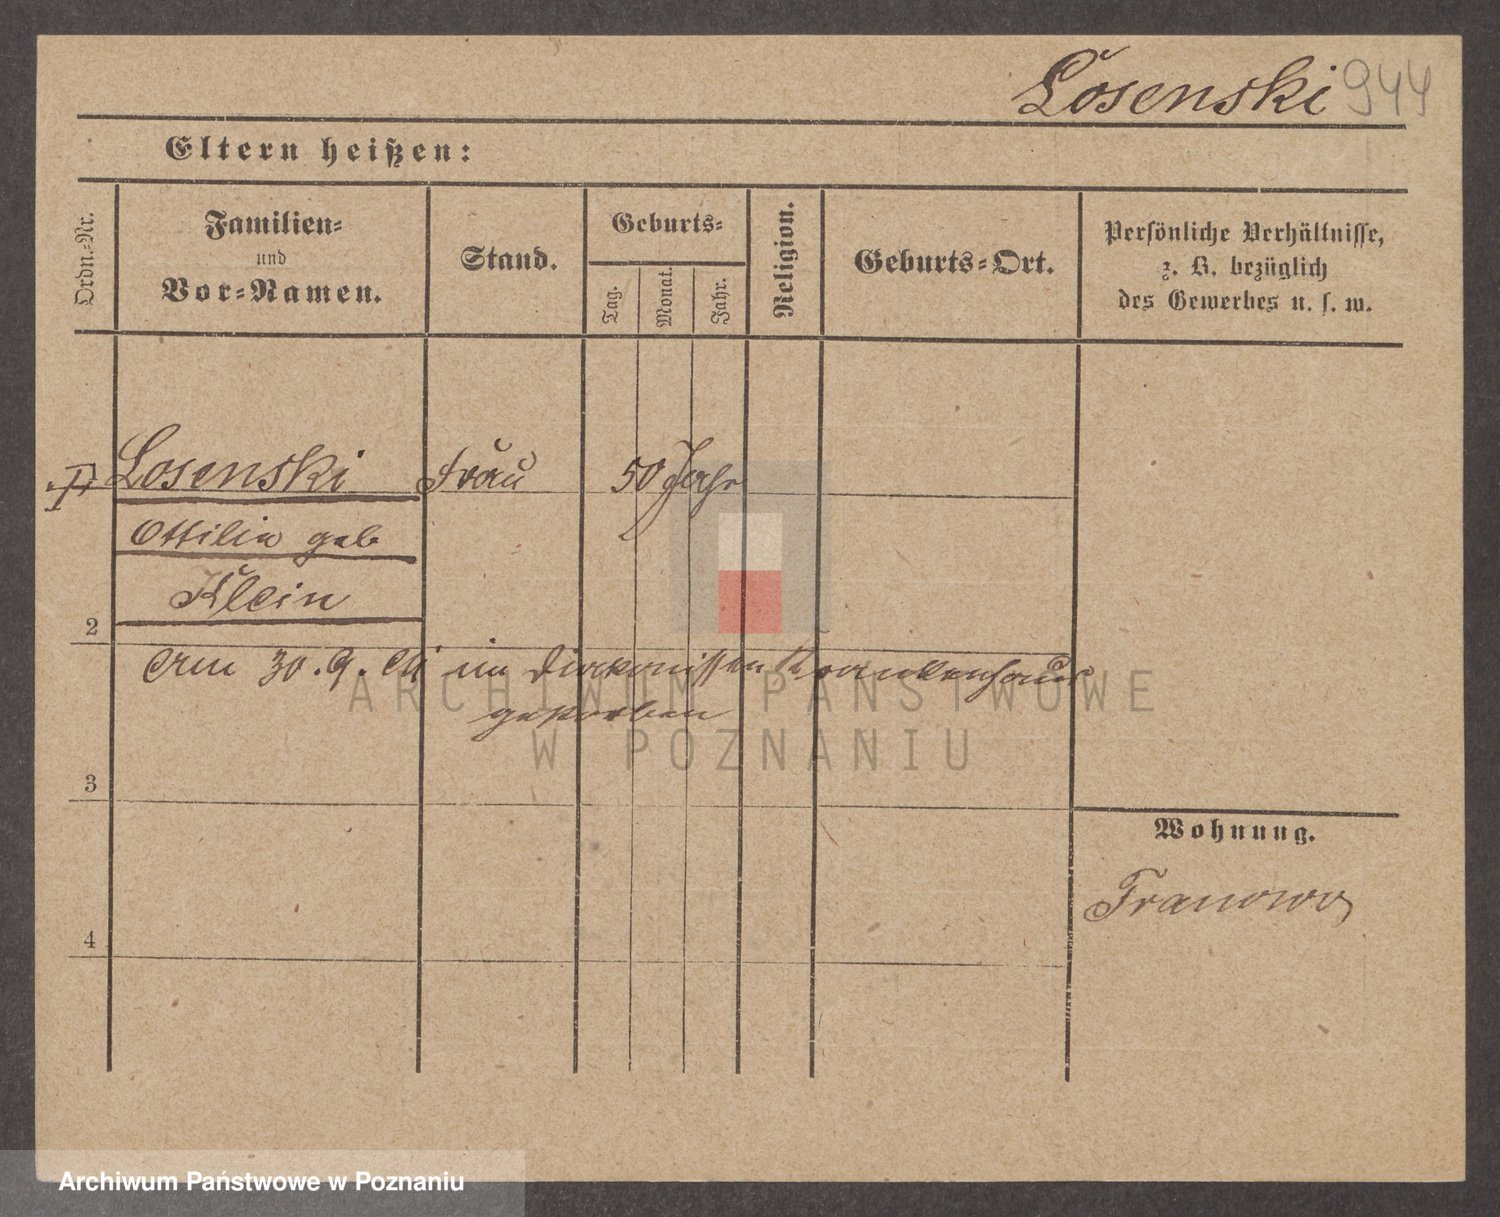 Losenski 944
Eltern heißen:
Ordn.-Nr.
Familien-
und
Vor-Namen.
Stand.
Geburts-
Tag.
Monat.
Jahr.
Religion.
Geburts-Ort.
Persönliche Verhältnisse,
z. B. bezüglich
des Gewerbes u. s. w.
Losenski Frau 50 Jahr
Ottilie geb
Klein
2
Am 30. 9. im Diakonissen Krankenhaus
gestorben
3
Wohnung.
Franowo
4
ARCHIWUM PAŃSTWOWE
W POZNANIU
Archiwum Państwowe w Poznaniu